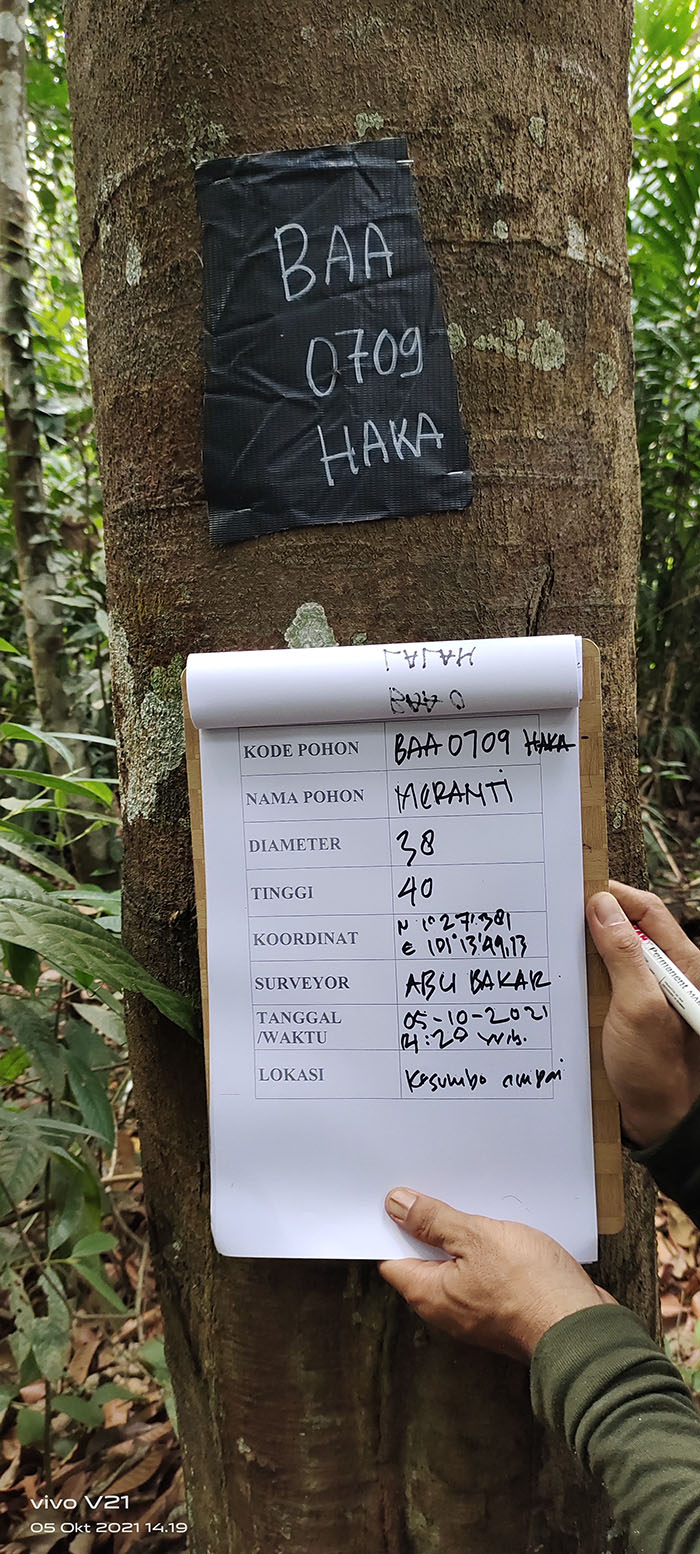 BAA
0709
HAKA
KODE POHON BAA 0709 HAKA
NAMA POHON MERANTI
DIAMETER 38
TINGGI 40
KOORDINAT N 1° 27'.381
E 101°13'49,13
SURVEYOR ABU BAKAR
TANGGAL 05-10-2021
/WAKTU :20 Wib.
LOKASI Kesumbo ampai
Permanent
vivo V21
05 Okt 2021 14.19